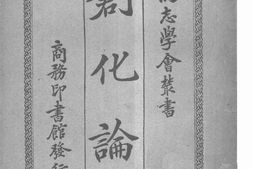 尚志學會叢書
創化論
商務印書館發行